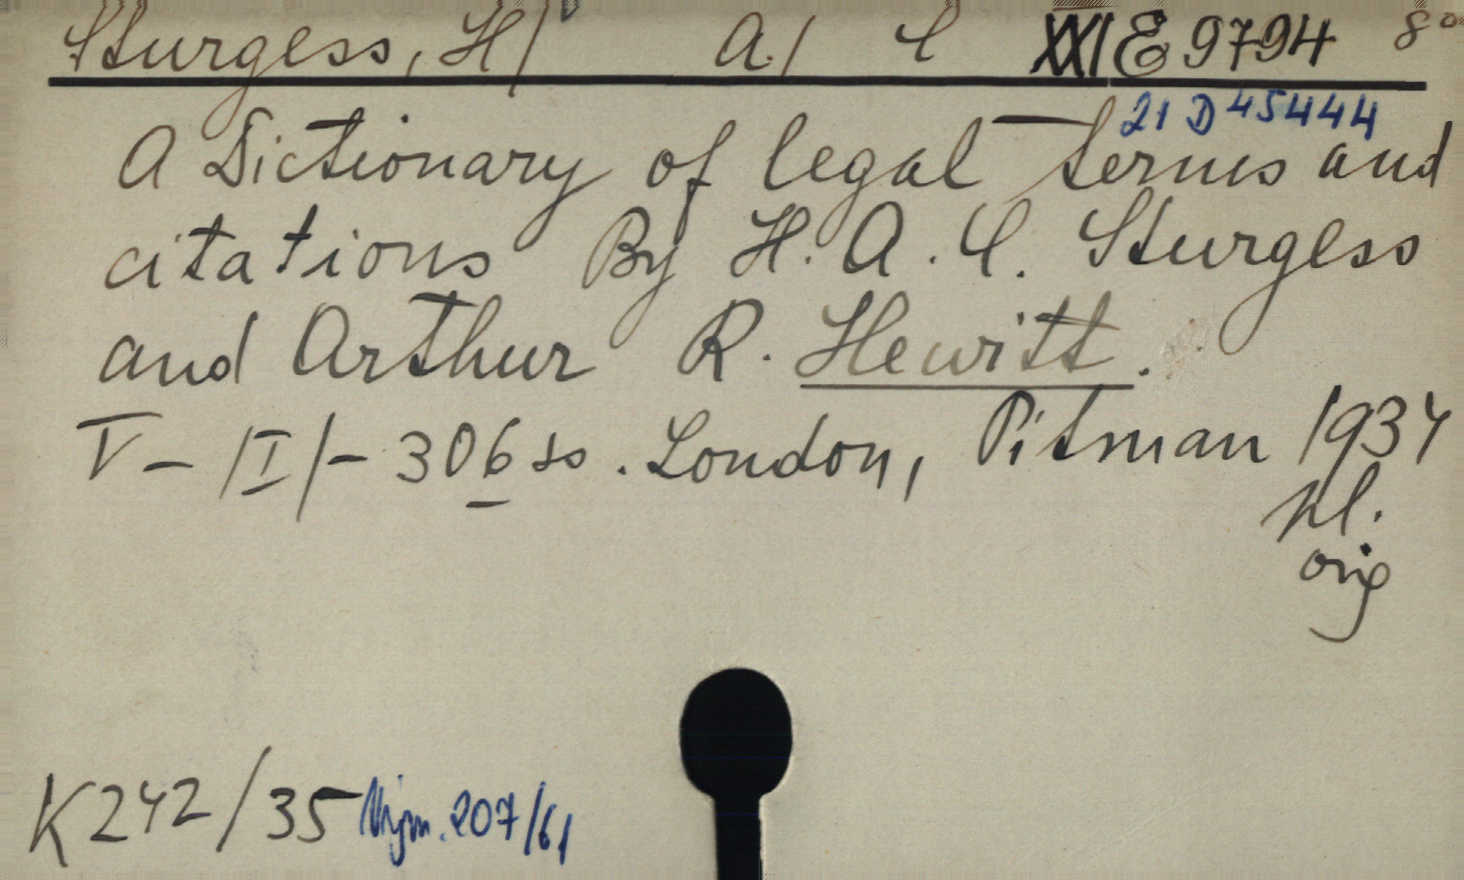 Sturgess, H/ A./ C XXI E 9794 8°
21 D 45444
A Dictionary of legal terms and
citations By H. A. C. Sturgess
and Arthur R. Hewitt.
V - /I/ - 306 ss. London, Pitman 1934
pl.
orig
K242/35 207/61